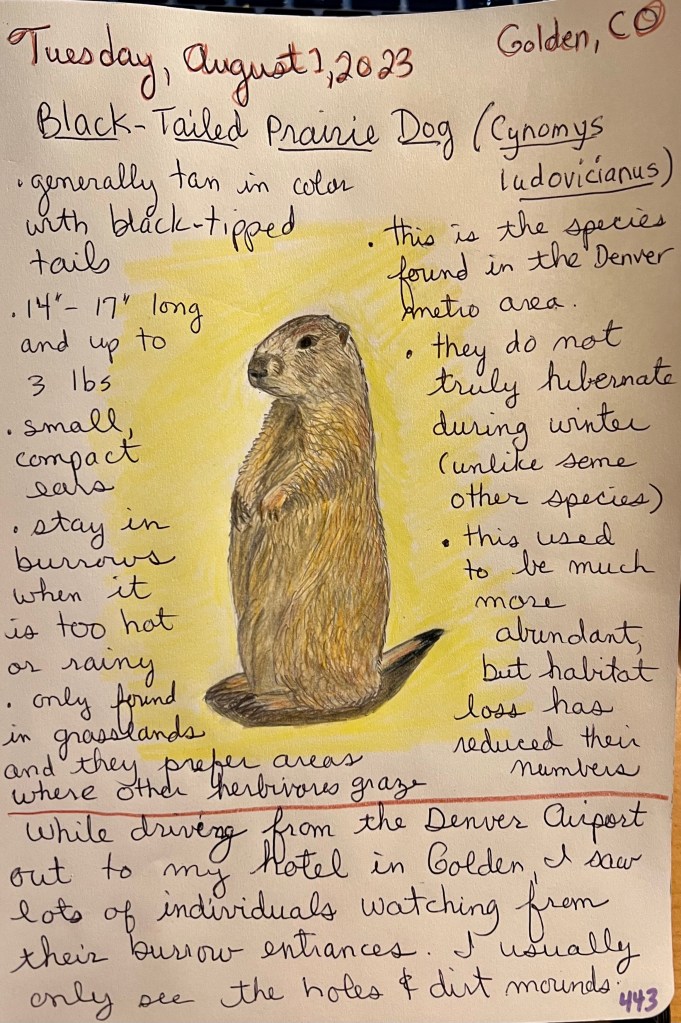 Tuesday, August 1, 2023
Golden, CO
Black-Tailed Prairie Dog (Cynomys
ludovicianus)
• generally tan in color
with black-tipped
tails
• 14"- 17" long
and up to
3 lbs
• small,
compact
ears
• stay in
burrows
when it
is too hot
or rainy
• only found
in grasslands
and they prefer areas
where other herbivores graze
• this is the species
found in the Denver
metro area.
• they do not
truly hibernate
during winter
(unlike some
other species)
• this used
to be much
more
abundant,
but habitat
loss has
reduced their
numbers
While driving from the Denver Airport
out to my hotel in Golden, I saw
lots of individuals watching from
their burrow entrances. I usually
only see the holes & dirt mounds.
443